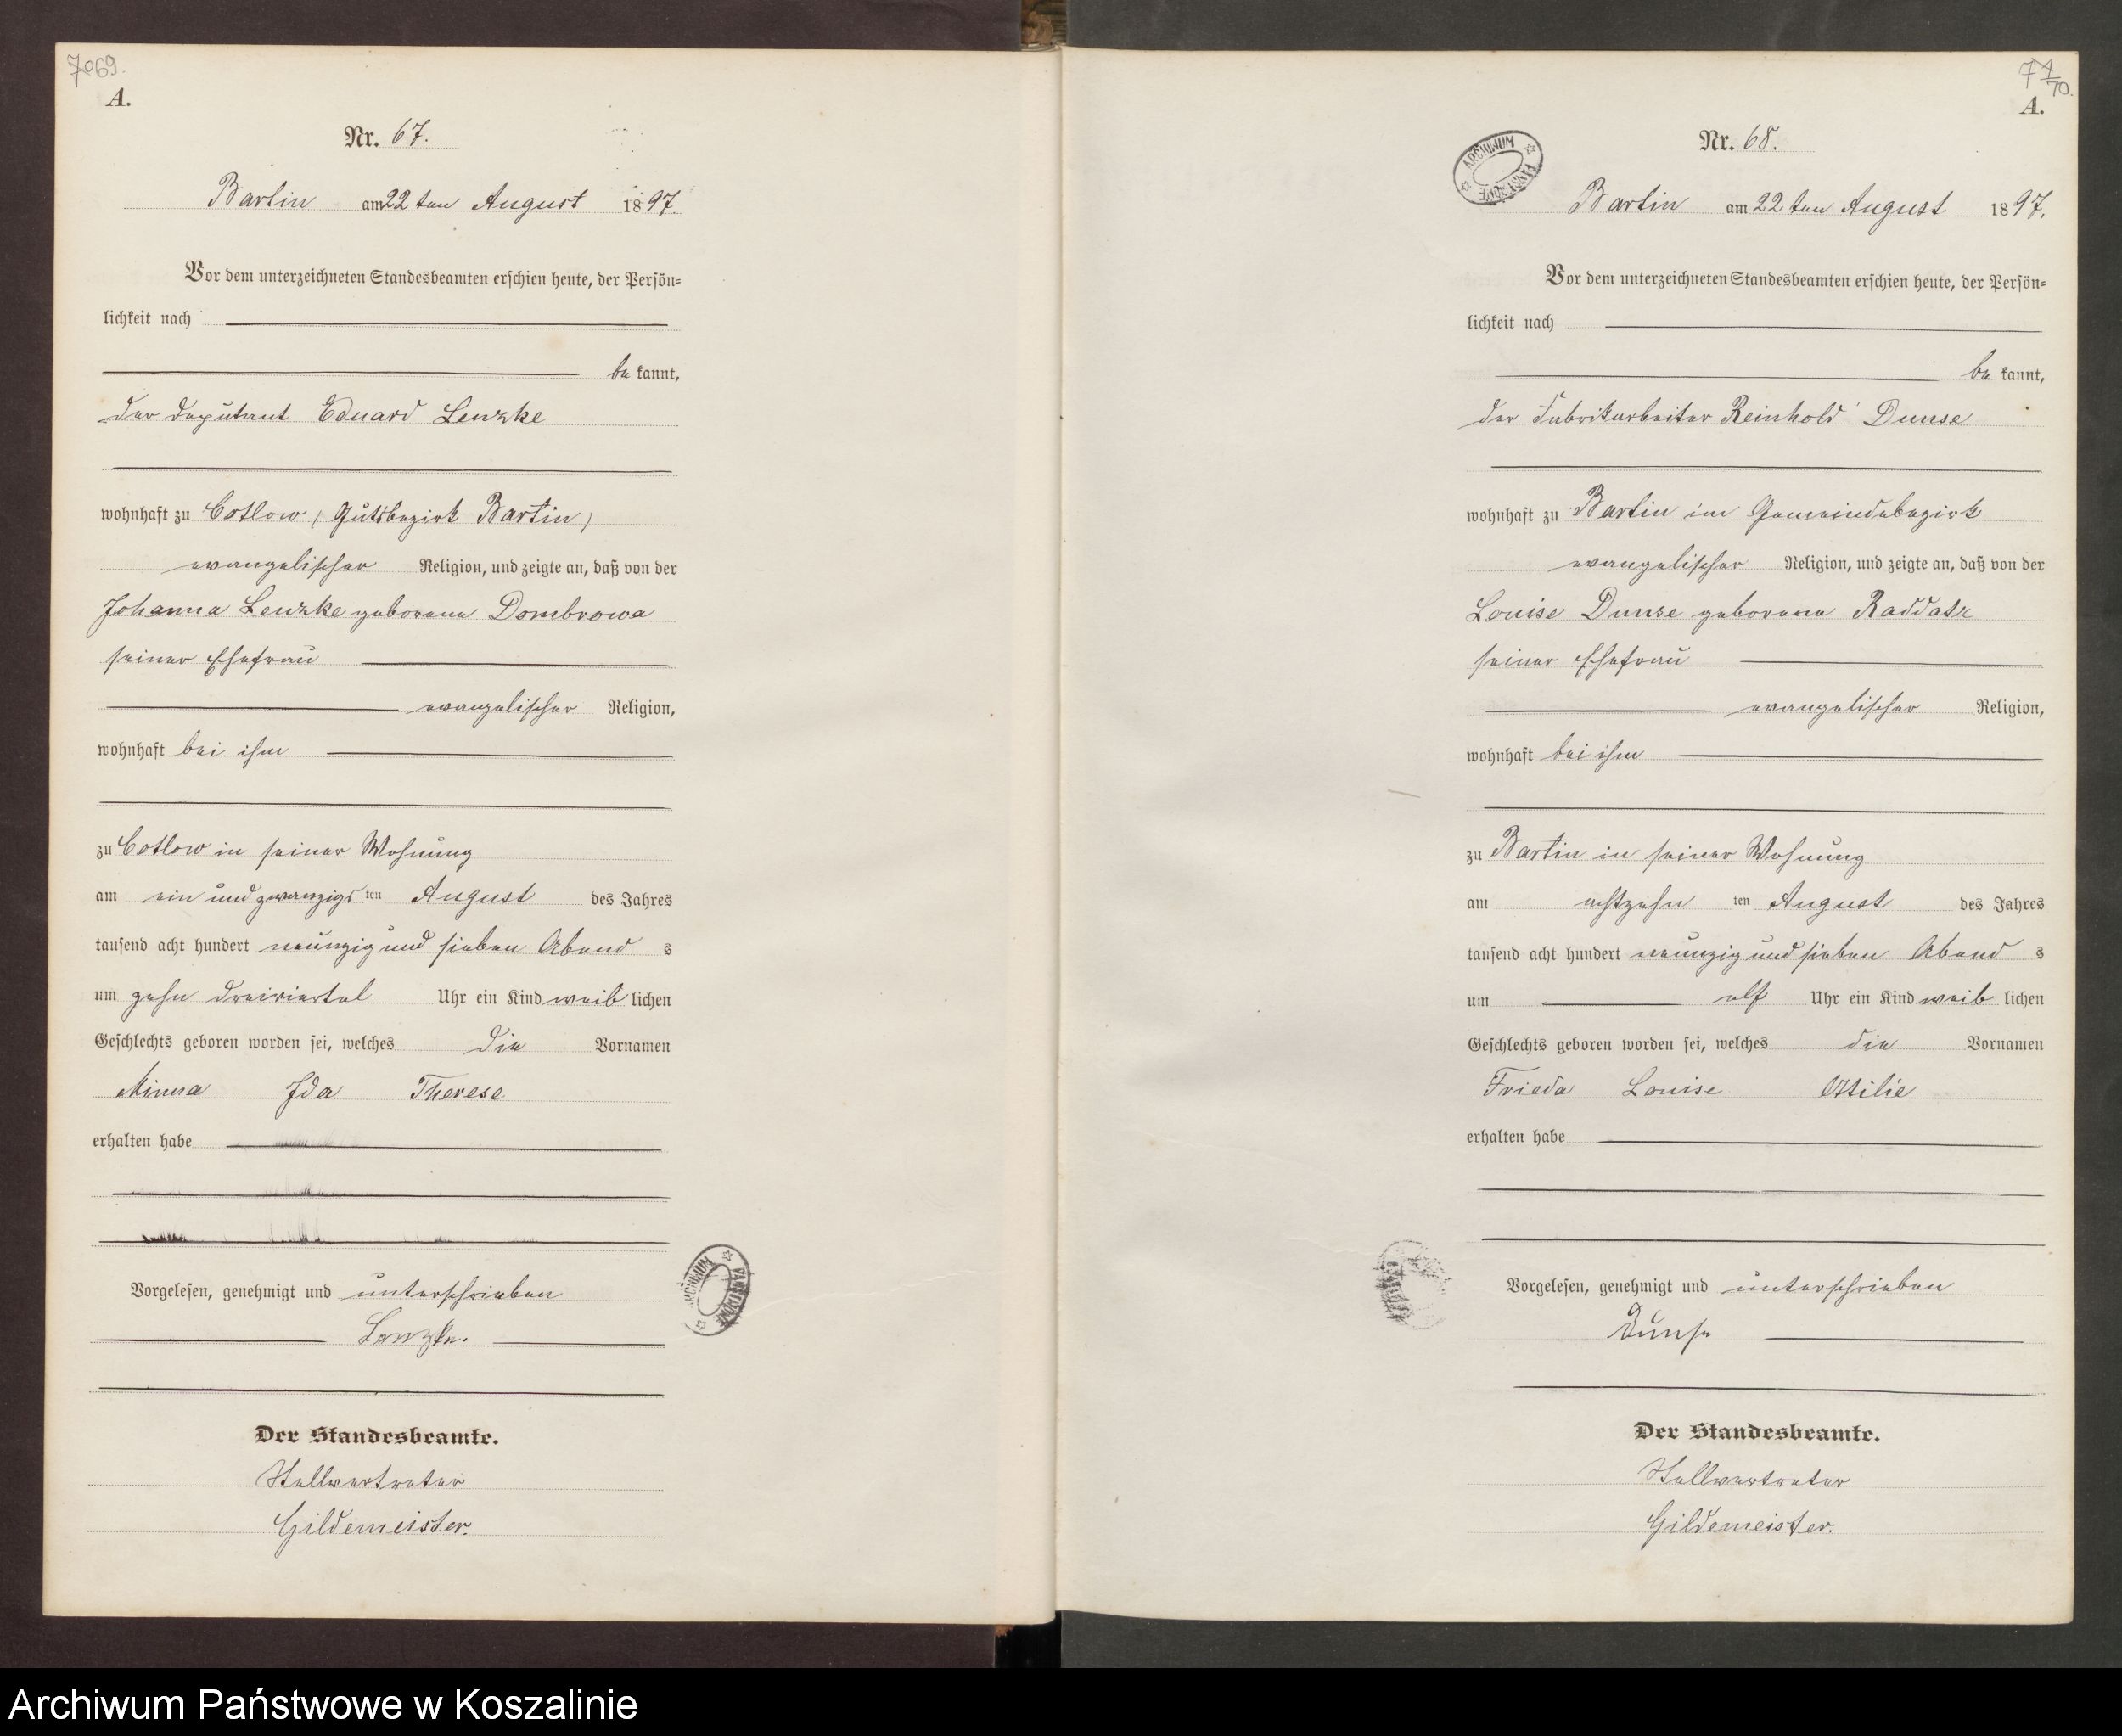 7069.
A.
Nr. 67.
Bartin am 22 ten August 1897.
Vor dem unterzeichneten Standesbeamten erschien heute, der Persön=
lichkeit nach
be kannt,
der Deputant Eduard Lenzke
wohnhaft zu Cotlow (Gutsbezirk Bartin)
evangelischer Religion, und zeigte an, daß von der
Johanna Lenzke geborene Dombrowa
seiner Ehefrau
evangelischer Religion,
wohnhaft bei ihm
zu Cotlow in seiner Wohnung
am ein und zwanzigs ten August des Jahres
tausend acht hundert neunzig und sieben Abend s
um zehn dreiviertel Uhr ein Kind weib lichen
Geschlechts geboren worden sei, welches die Vornamen
Minna Ida Therese
erhalten habe
Vorgelesen, genehmigt und unterschrieben
Lenzke.
Der Standesbeamte.
Stellvertreter
Gildemeister.
ARCHIWUM PAŃSTWOWE
71
70.
A.
Nr. 68.
ARCHIWUM PAŃSTWOWE
Bartin am 22 ten August 1897.
Vor dem unterzeichneten Standesbeamten erschien heute, der Persön=
lichkeit nach
be kannt,
der Fabrikarbeiter Reinhold Dunse
wohnhaft zu Bartin im Gemeindebezirk
evangelischer Religion, und zeigte an, daß von der
Louise Dunse geborene Raddatz
seiner Ehefrau
evangelischer Religion,
wohnhaft bei ihm
zu Bartin in seiner Wohnung
am achtzehn ten August des Jahres
tausend acht hundert neunzig und sieben Abend s
um elf Uhr ein Kind weib lichen
Geschlechts geboren worden sei, welches die Vornamen
Frieda Louise Ottilie
erhalten habe
Vorgelesen, genehmigt und unterschrieben
Dunse
Der Standesbeamte.
Stellvertreter
Gildemeister.
Archiwum Państwowe w Koszalinie